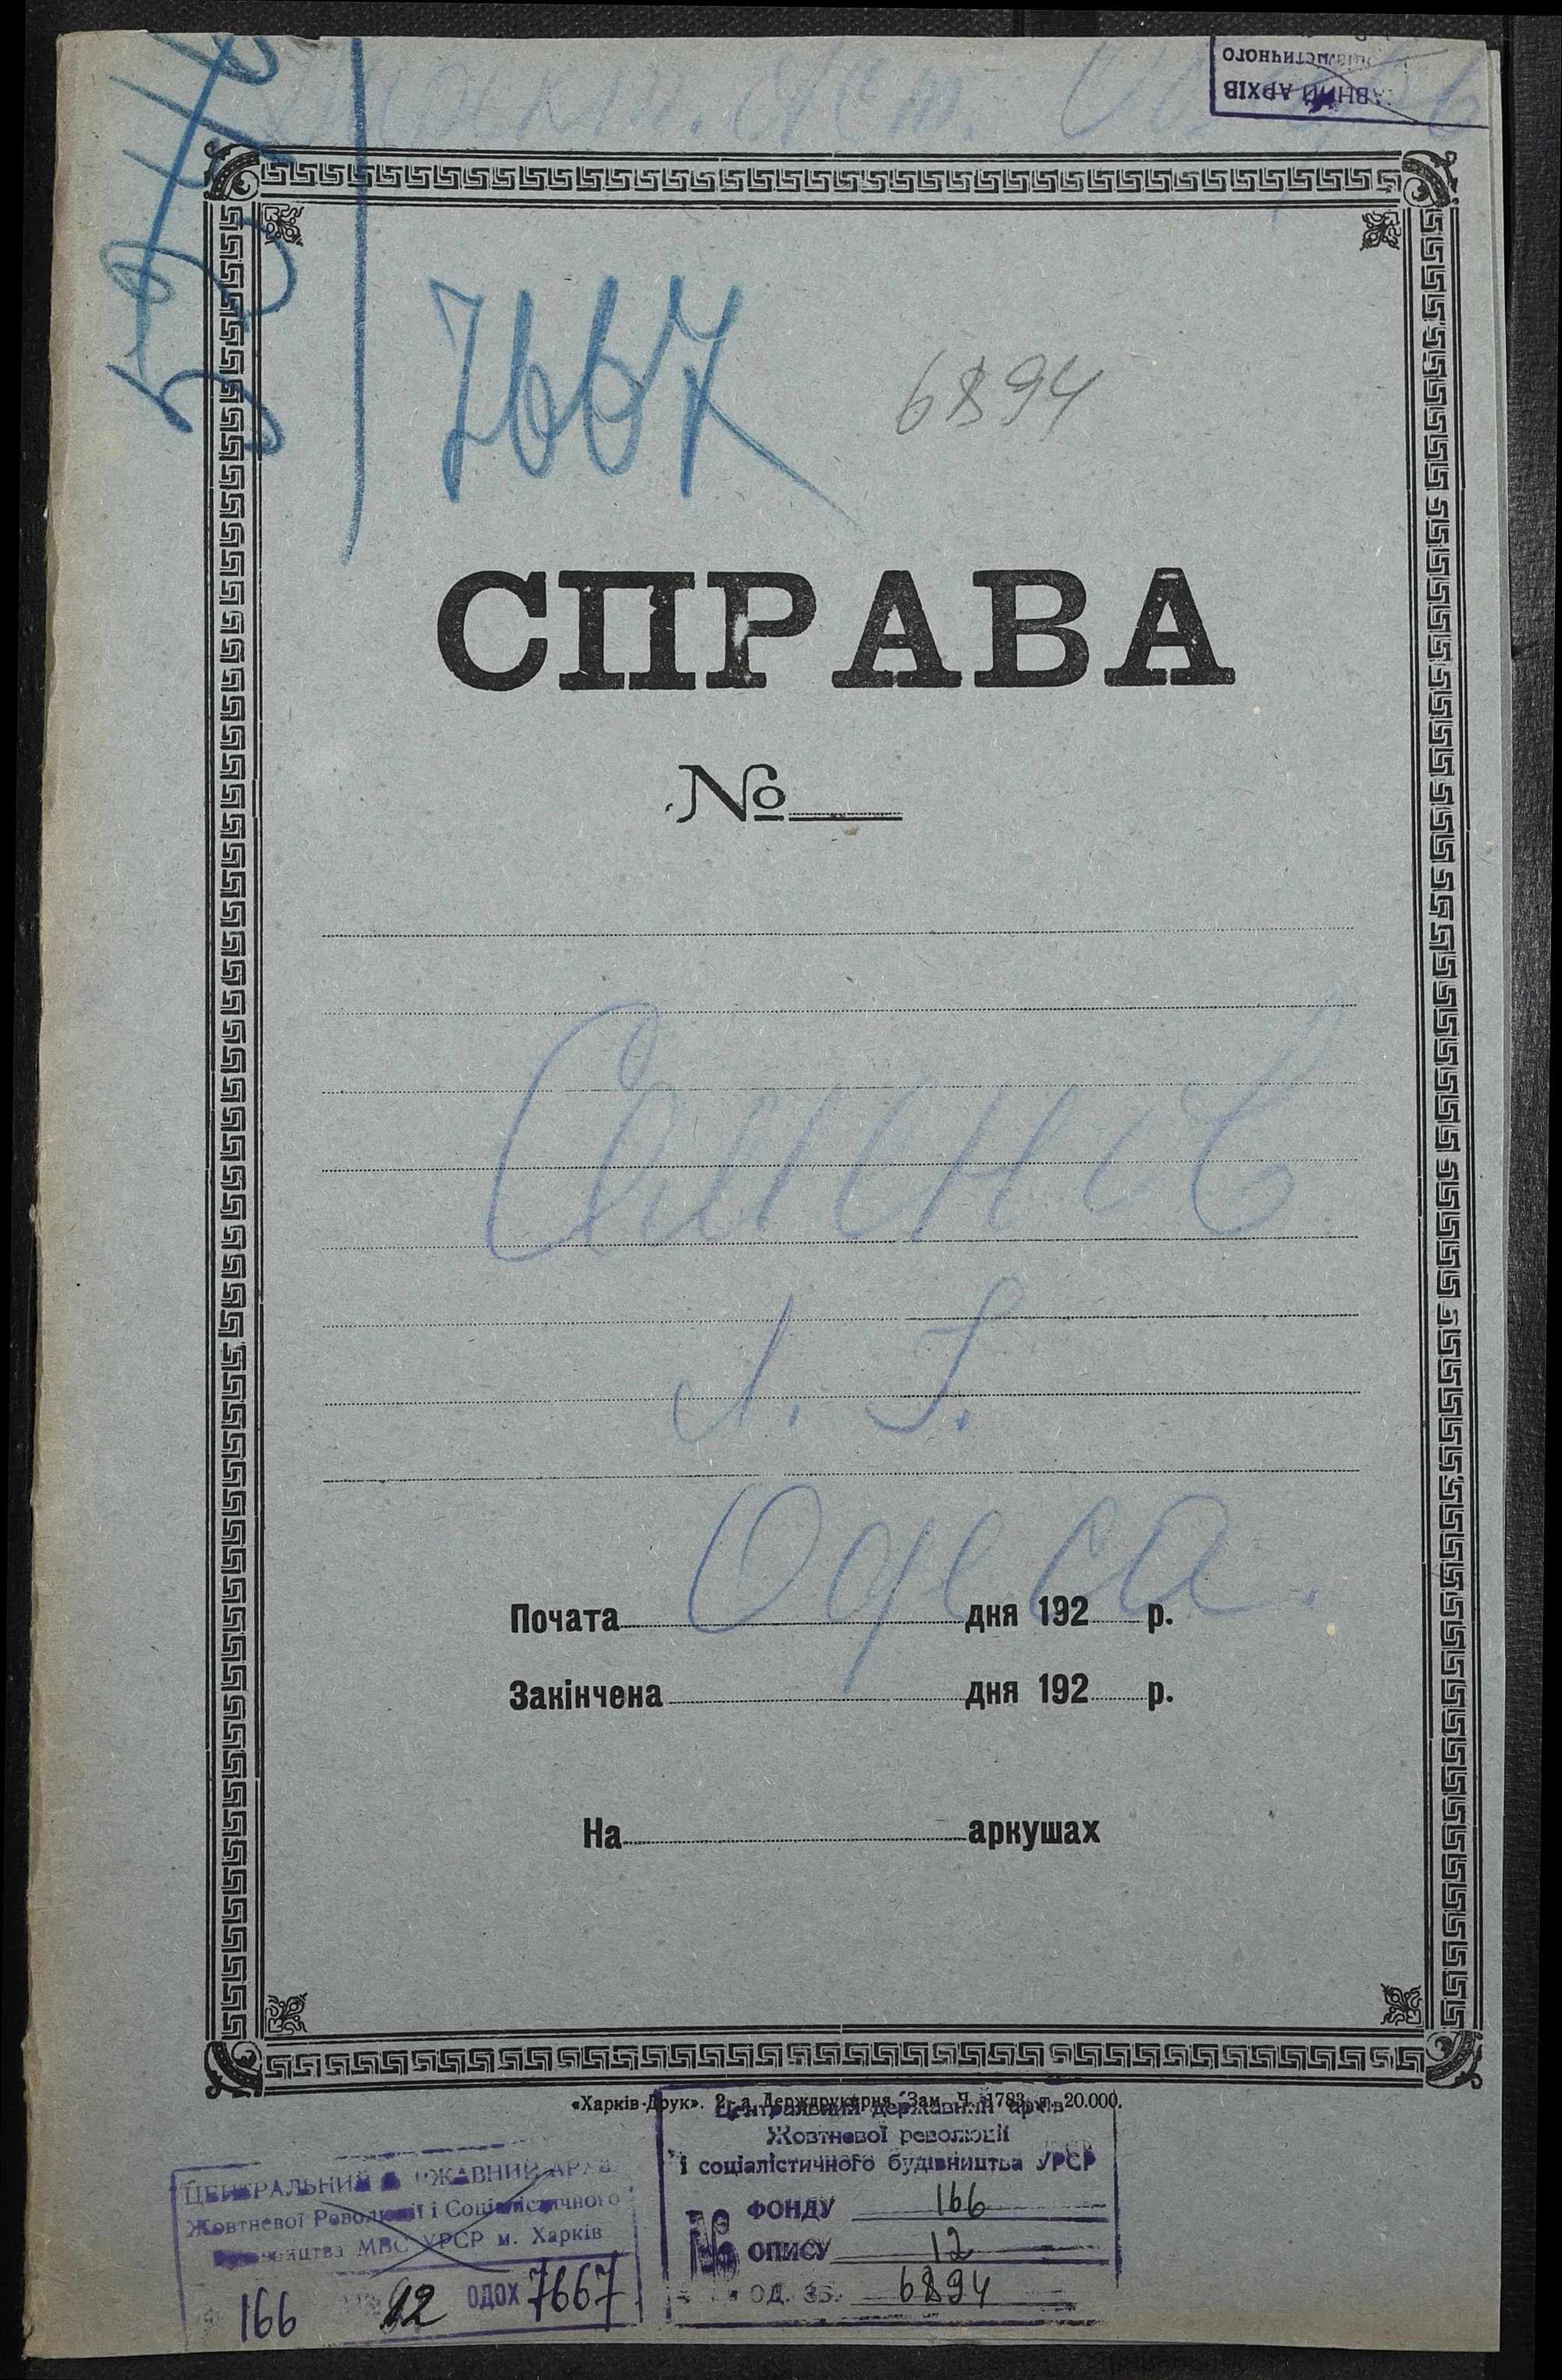 АВНИЙ АРХІВ
7667
6894
СПРАВА
№
Л. І.
Одеса.
Почата дня 192 р.
Закінчена дня 192 р.
На аркушах
«Харків-Друк». 2-а Держдрукарня. Зам. Ч. 1783. т. 20.000.
Центральний державний архів
Жовтневої революції
і соціалістичного будівництва УРСР
№ ФОНДУ 166
ОПИСУ 12
ОД. ЗБ. 6894
ЦЕНТРАЛЬНИЙ ДЕРЖАВНИЙ АРХІВ
Жовтневої Революції і Соціалістичного
будівництва МВС УРСР м. Харків
166 12 ОДОХ 7667